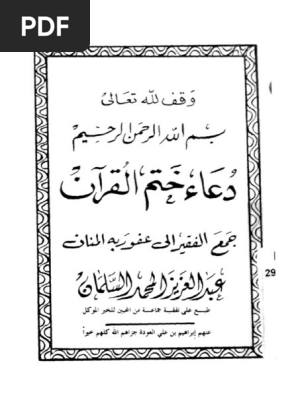 PDF
وقف لله تعالى
بسم الله الرحمن الرحيم
دعاء ختم القرآن
جمع الفقير الى عفو ربه المنان
عبد العزيز المحمد السلمان
طبع على نفقة جماعة من المحبين للخير الموكل
عنهم إبراهيم بن علي العودة جزاهم الله كلهم خيراً
29